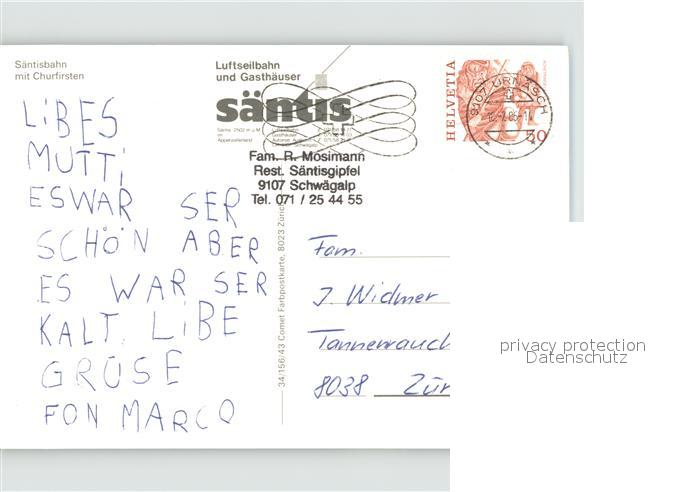 Säntisbahn
mit Churfirsten
Luftseilbahn
und Gasthäuser
säntis
HELVETIA
50
9107 URNÄSCH
Fam. R. Mosimann
Rest. Säntisgipfel
9107 Schwägalp
Tel. 071 / 25 44 55
LiBES
MUTTi
ESWAR SER
SCHÖN ABER
ES WAR SER
KALT. LiBE
GRÜSE
FON MARCO
34/156/43 Comet Farbpostkarte, 8023 Zürich
Fam.
J. Widmer
Tannenrauch
8038 Zür
privacy protection
Datenschutz